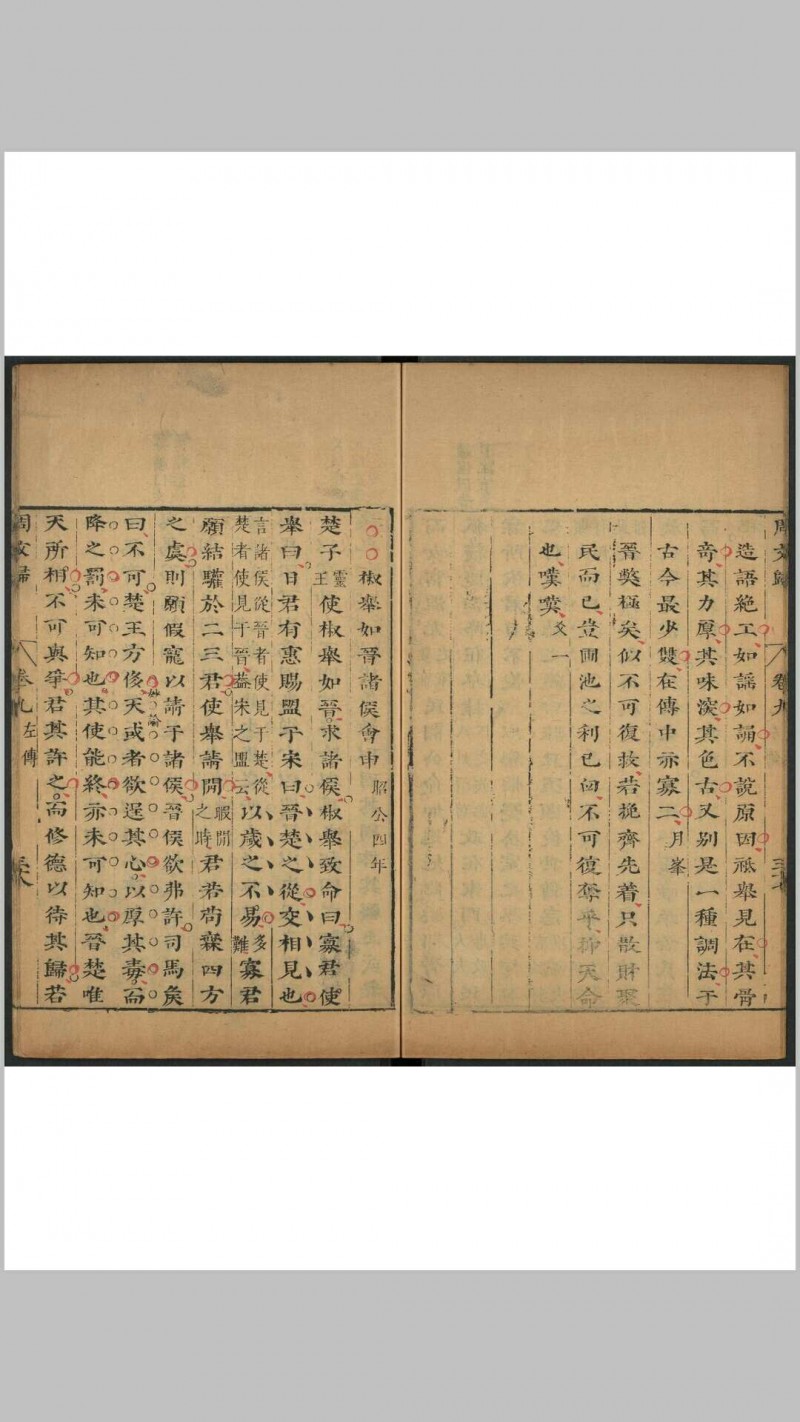 周文歸 卷九
造語絕工如謡如誦不說原因祗舉見在其骨
奇其力厚其味深其色古又別是一種調法于
古今最少雙在傳中亦寡二月峯
晉獘極矣似不可復救若挽齊先着只散財聚
民而已豈圃池之利已向不可復奪乎抑天命
也噗噗爻一
椒舉如晉諸侯會申 昭公四年
楚子靈王使椒舉如晉求諸侯椒舉致命曰寡君使
舉曰日君有惠賜盟于宋曰晉楚之從交相見也
言諸侯從晉者使見于楚從楚者使見于晉蓋宋之盟云以歲之不易多難寡君
願結驩於二三君使舉請閒暇閒之時君若苟無四方
之虞則願假寵以請于諸侯晉侯欲弗許司馬矦
曰不可楚王方侈天或者欲逞其心以厚其毒而
降之罰未可知也其使能終亦未可知也晉楚唯
天所相不可與爭君其許之而修德以待其歸若
周文歸 卷九 左傳